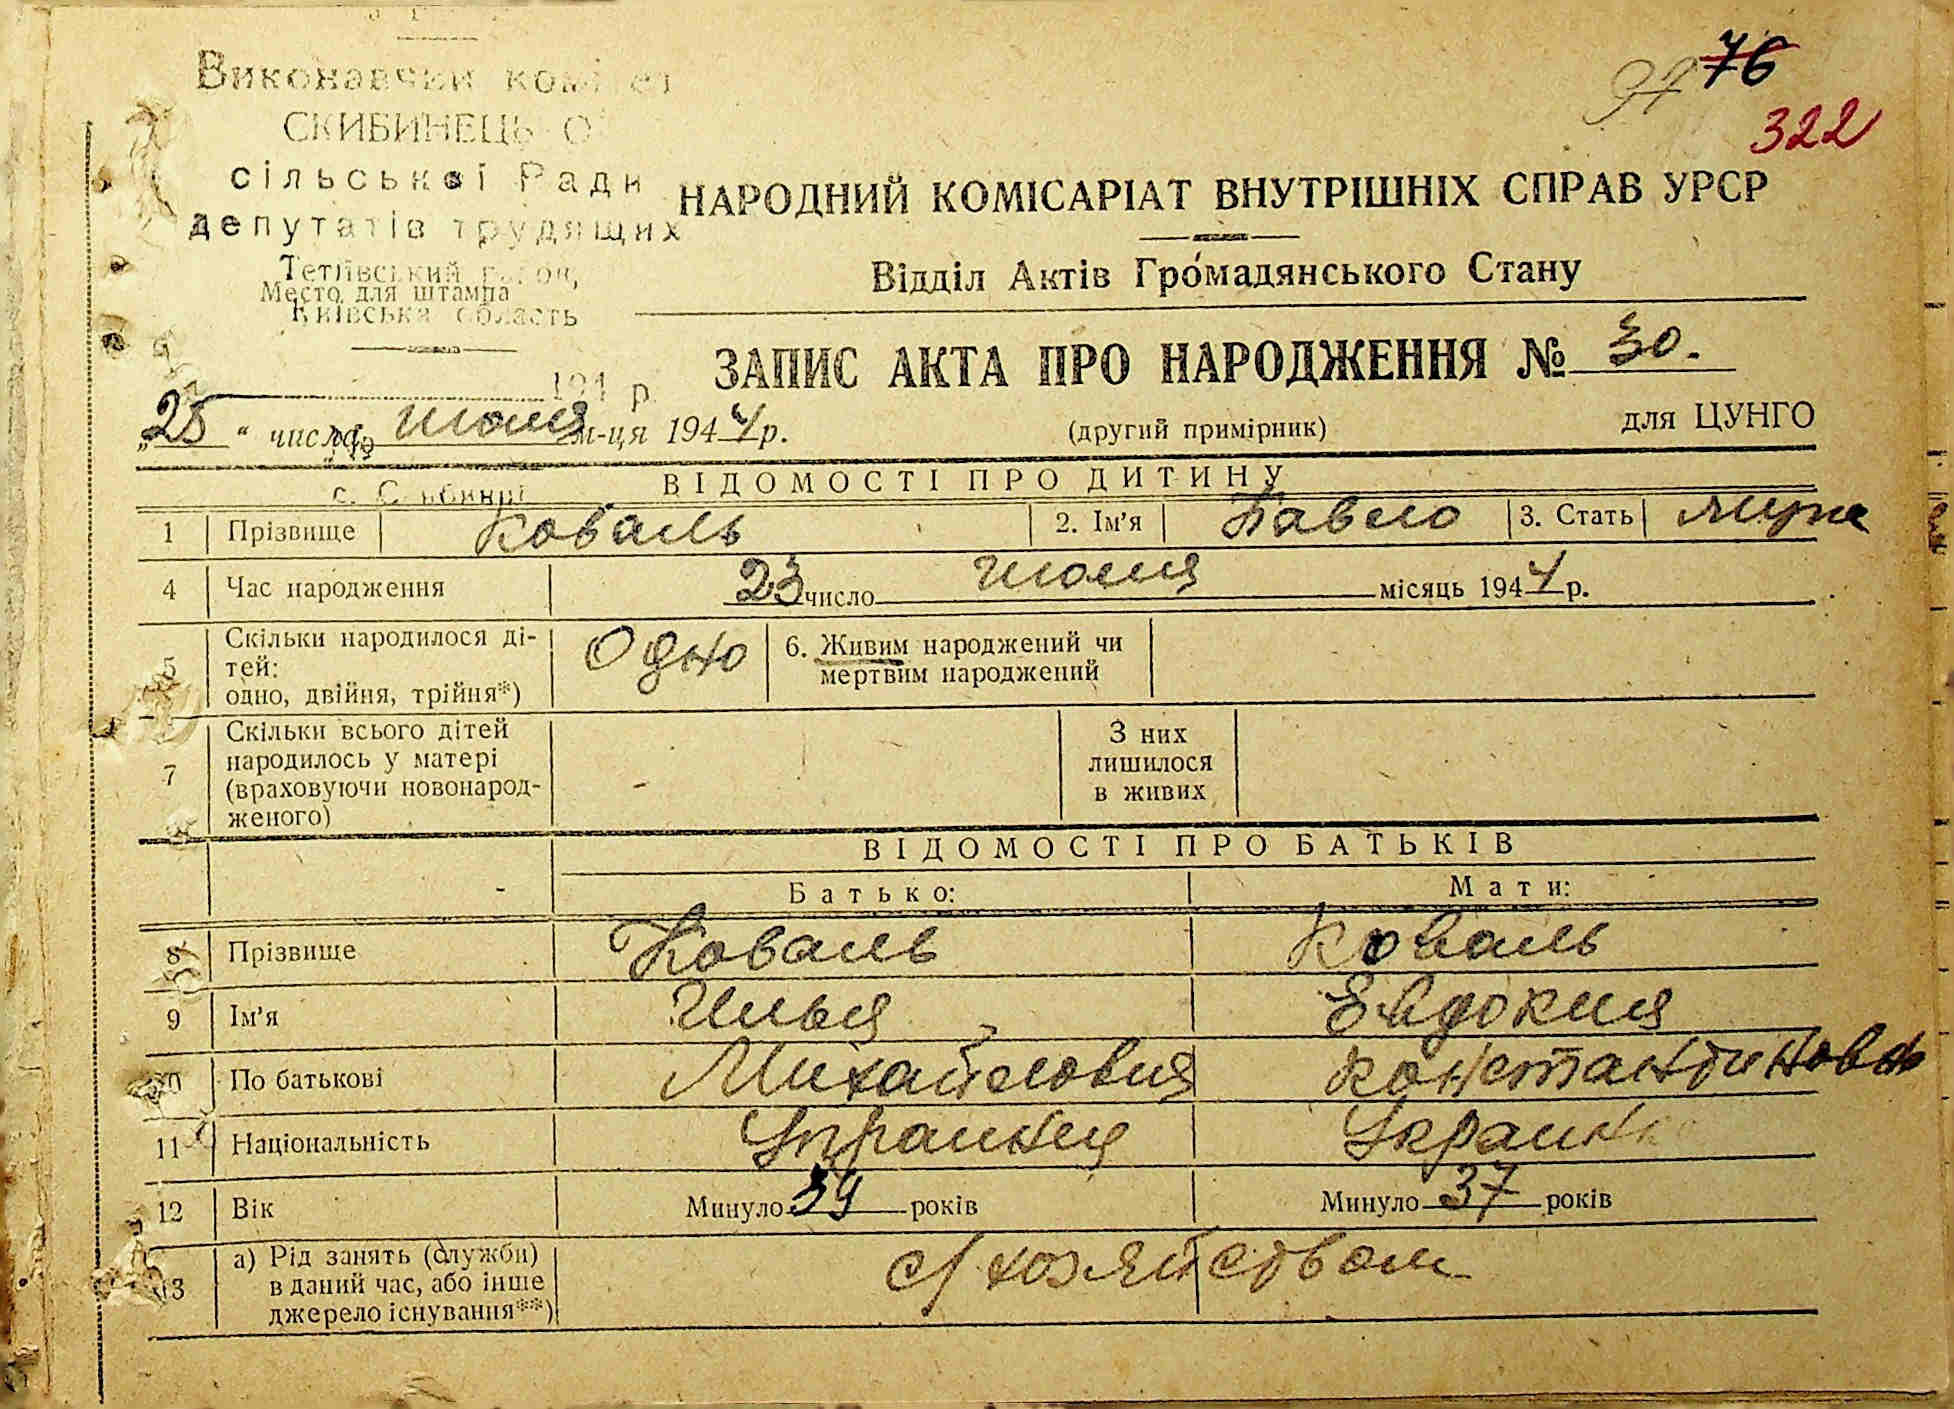 76
322
Виконавчий комітет
СКИБИНЕЦЬКО
сільської Ради
депутатів трудящих
Тетіївський
Место для штампа
Київська область
НАРОДНИЙ КОМІСАРІАТ ВНУТРІШНІХ СПРАВ УРСР
Відділ Актів Громадянського Стану
ЗАПИС АКТА ПРО НАРОДЖЕННЯ № 30.
194 р.
„25“ числа июля м-ця 1944 р.
(другий примірник)
для ЦУНГО
ВІДОМОСТІ ПРО ДИТИНУ
1 Прізвище Коваль 2. Ім’я Павло 3. Стать
4 Час народження 23 число июля місяць 1944 р.
5 Скільки народилося ді-
тей:
одно, двійня, трійня*) Одно 6. Живим народжений чи
мертвим народжений
7 Скільки всього дітей
народилось у матері
(враховуючи новонарод-
женого)
З них
лишилося
в живих
ВІДОМОСТІ ПРО БАТЬКІВ
Батько: Мати:
8 Прізвище Коваль Коваль
9 Ім’я Илья Евдокия
10 По батькові Михайлович Константиновна
11 Національність Украинец Украинка
12 Вік Минуло 39 років Минуло 37 років
13 а) Рід занять (служби)
в даний час, або інше
джерело існування**) с/хозяйством